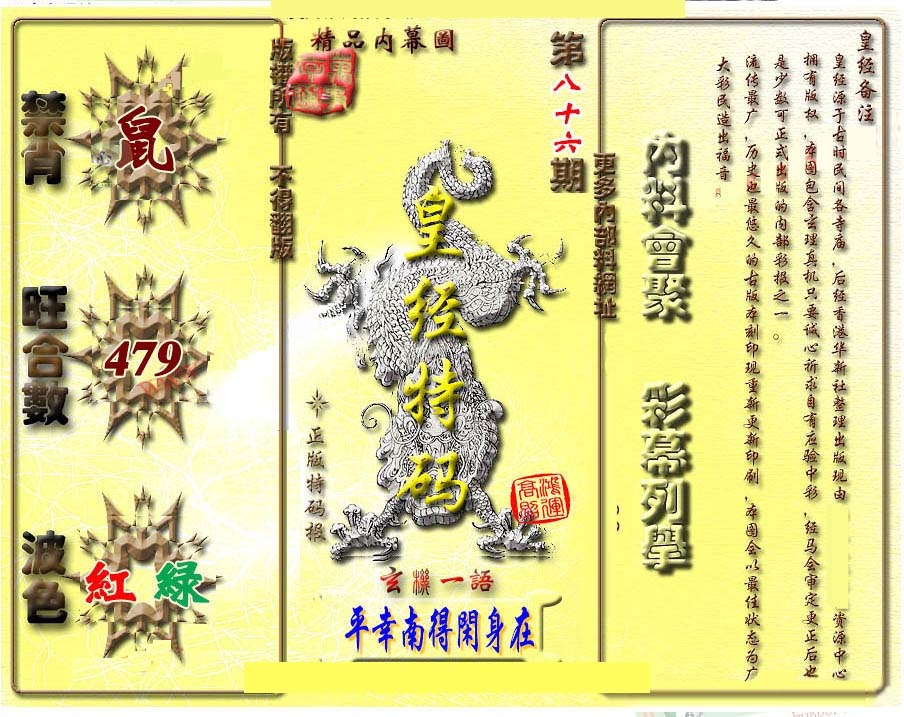 精品内幕圖
第八十六期
版權所有 不得翻版
更多内部料網址
禁肖
鼠
旺合數
479
波色
紅 綠
皇经特码
正版特码报
鴻運高照
玄機一語
平幸南得閑身在
内料會聚
彩幕列舉
皇经备注
皇经源于古时民间各寺庙，后经香港华新社整理出版现由 资源中心
拥有版权，本图包含玄理真机只要诚心祈求自有应验中彩，经马会审定更正后也
是少数可正式出版的内部彩报之一。
流传最广，历史也最悠久的古版本刻印现重新更新印刷，本图会以最佳状态为广
大彩民造出福音